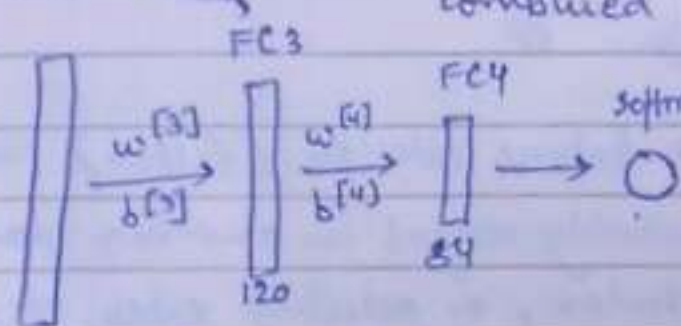 combined
FC3
FC4
softm
w[3]
w[4]
b[3]
b[4]
120
84